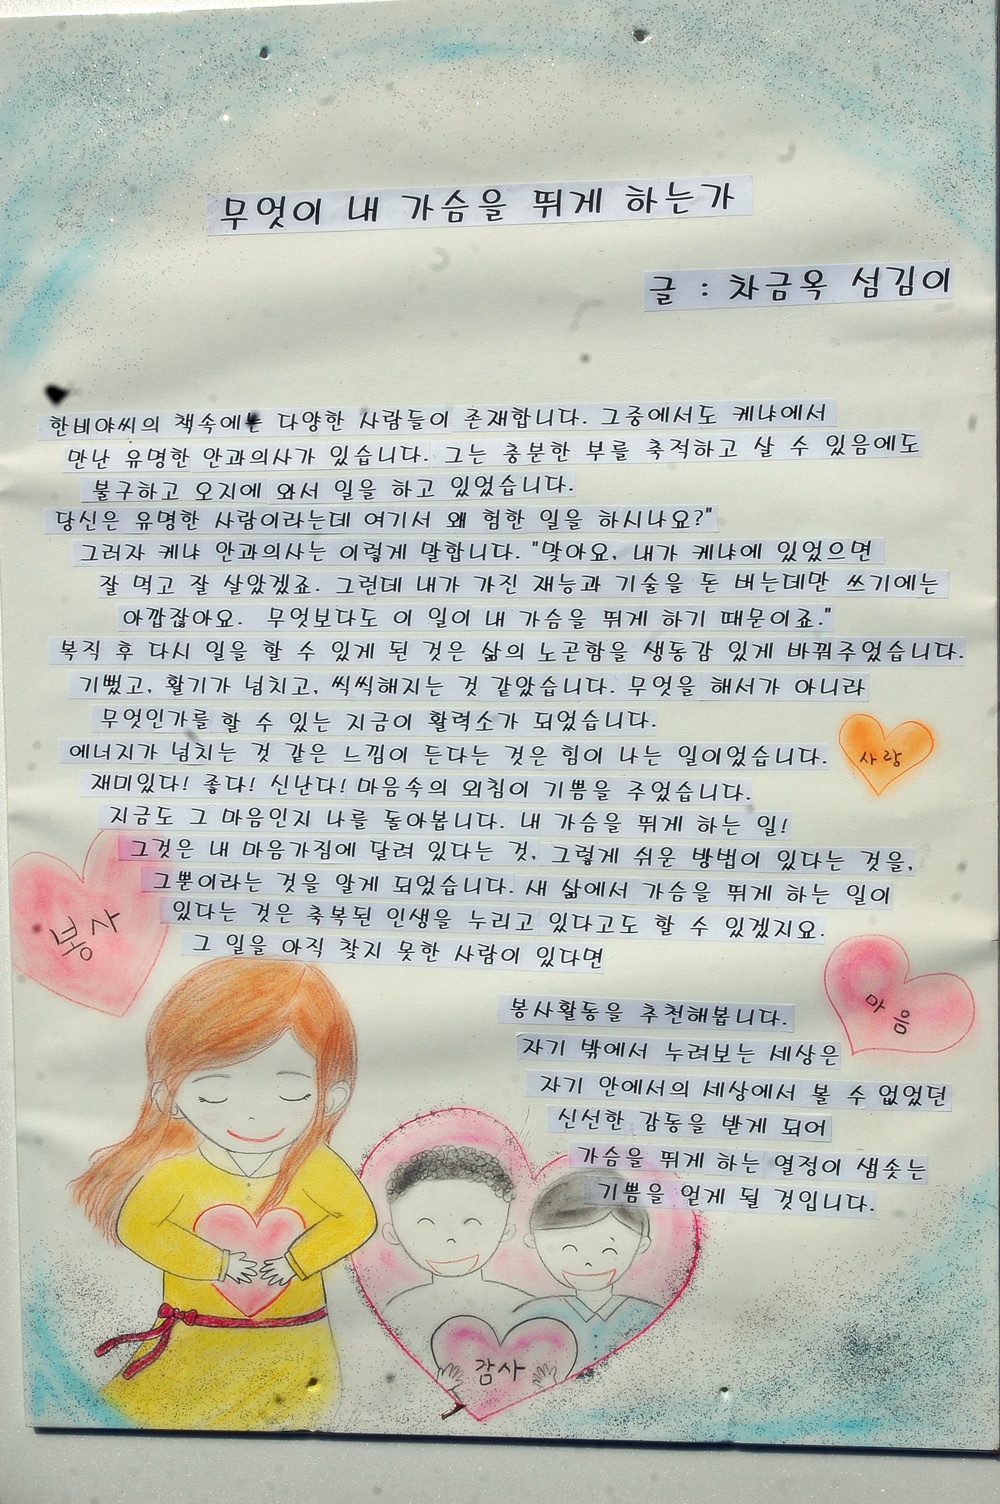 무엇이 내 가슴을 뛰게 하는가
글 : 차금옥 섬김이
한비야씨의 책속에는 다양한 사람들이 존재합니다. 그중에서도 케냐에서
만난 유명한 안과의사가 있습니다. 그는 충분한 부를 축적하고 살 수 있음에도
불구하고 오지에 와서 일을 하고 있었습니다.
당신은 유명한 사람이라는데 여기서 왜 험한 일을 하시나요?"
그러자 케냐 안과의사는 이렇게 말합니다. "맞아요, 내가 케냐에 있었으면
잘 먹고 잘 살았겠죠. 그런데 내가 가진 재능과 기술을 돈 버는데만 쓰기에는
아깝잖아요. 무엇보다도 이 일이 내 가슴을 뛰게 하기 때문이죠."
복직 후 다시 일을 할 수 있게 된 것은 삶의 노곤함을 생동감 있게 바꿔주었습니다.
기뻤고, 활기가 넘치고, 씩씩해지는 것 같았습니다. 무엇을 해서가 아니라
무엇인가를 할 수 있는 지금이 활력소가 되었습니다.
에너지가 넘치는 것 같은 느낌이 든다는 것은 힘이 나는 일이었습니다.
사랑
재미있다! 좋다! 신난다! 마음속의 외침이 기쁨을 주었습니다.
지금도 그 마음인지 나를 돌아봅니다. 내 가슴을 뛰게 하는 일!
그것은 내 마음가짐에 달려 있다는 것, 그렇게 쉬운 방법이 있다는 것을,
그뿐이라는 것을 알게 되었습니다. 새 삶에서 가슴을 뛰게 하는 일이
있다는 것은 축복된 인생을 누리고 있다고도 할 수 있겠지요.
봉사
그 일을 아직 찾지 못한 사람이 있다면
봉사활동을 추천해봅니다.
마음
자기 밖에서 누려보는 세상은
자기 안에서의 세상에서 볼 수 없었던
신선한 감동을 받게 되어
가슴을 뛰게 하는 열정이 샘솟는
기쁨을 얻게 될 것입니다.
감사